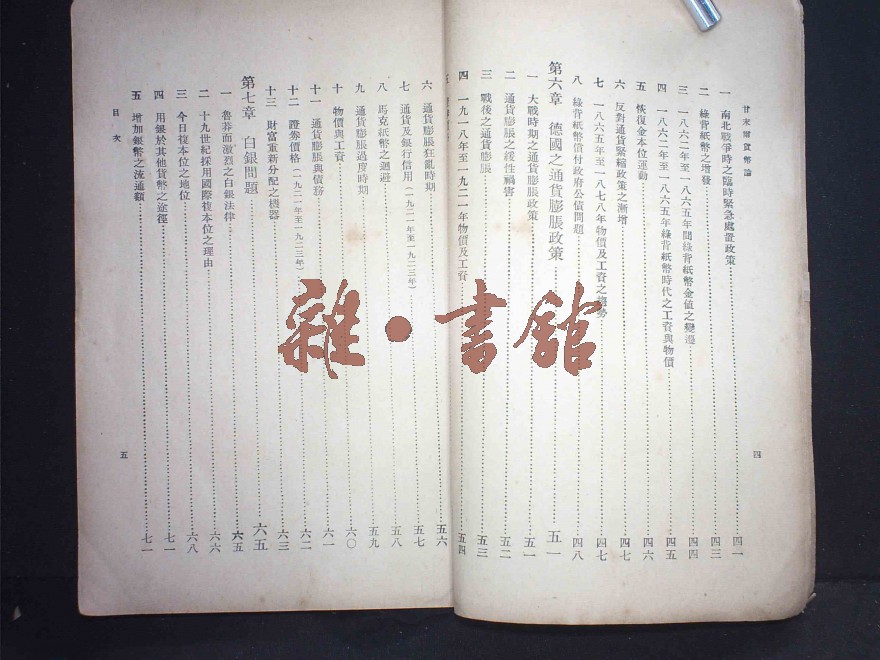 甘末爾貨幣論
一 南北戰爭時之臨時緊急處置政策……四一
二 綠背紙幣之增發……四三
三 一八六二年至一八六五年間綠背紙幣金値之變遷……四四
四 一八六二年至一八六五年綠背紙幣時代之工資與物價……四五
五 恢復金本位運動……四六
六 反對通貨緊縮政策之漸增……四七
七 一八六五年至一八七八年物價及工資之趨勢……四七
八 綠背紙幣償付政府公債問題……四八
第六章 德國之通貨膨脹政策……五一
一 大戰時期之通貨膨脹政策……五一
二 通貨膨脹之緩性禍害……五二
三 戰後之通貨膨脹……五三
四 一九一八年至一九二一年物價及工資……五四
四
六 通貨膨脹狂亂時期……五六
七 通貨及銀行信用(一九二一年至一九二三年)……五七
八 馬克紙幣之逃避……五八
九 通貨膨脹過度時期……五九
十 物價與工資……六〇
十一 通貨膨脹與債務……六一
十二 證券價格(一九二一年至一九二三年)……六二
十三 財富重新分配之機器……六三
第七章 白銀問題……六五
一 魯莽而激烈之白銀法律……六五
二 十九世紀採用國際複本位之理由……六六
三 今日複本位之地位……六八
四 用銀於其他貨幣之途徑……七一
五 增加銀幣之流通額……七一
目次
五
雜·書館